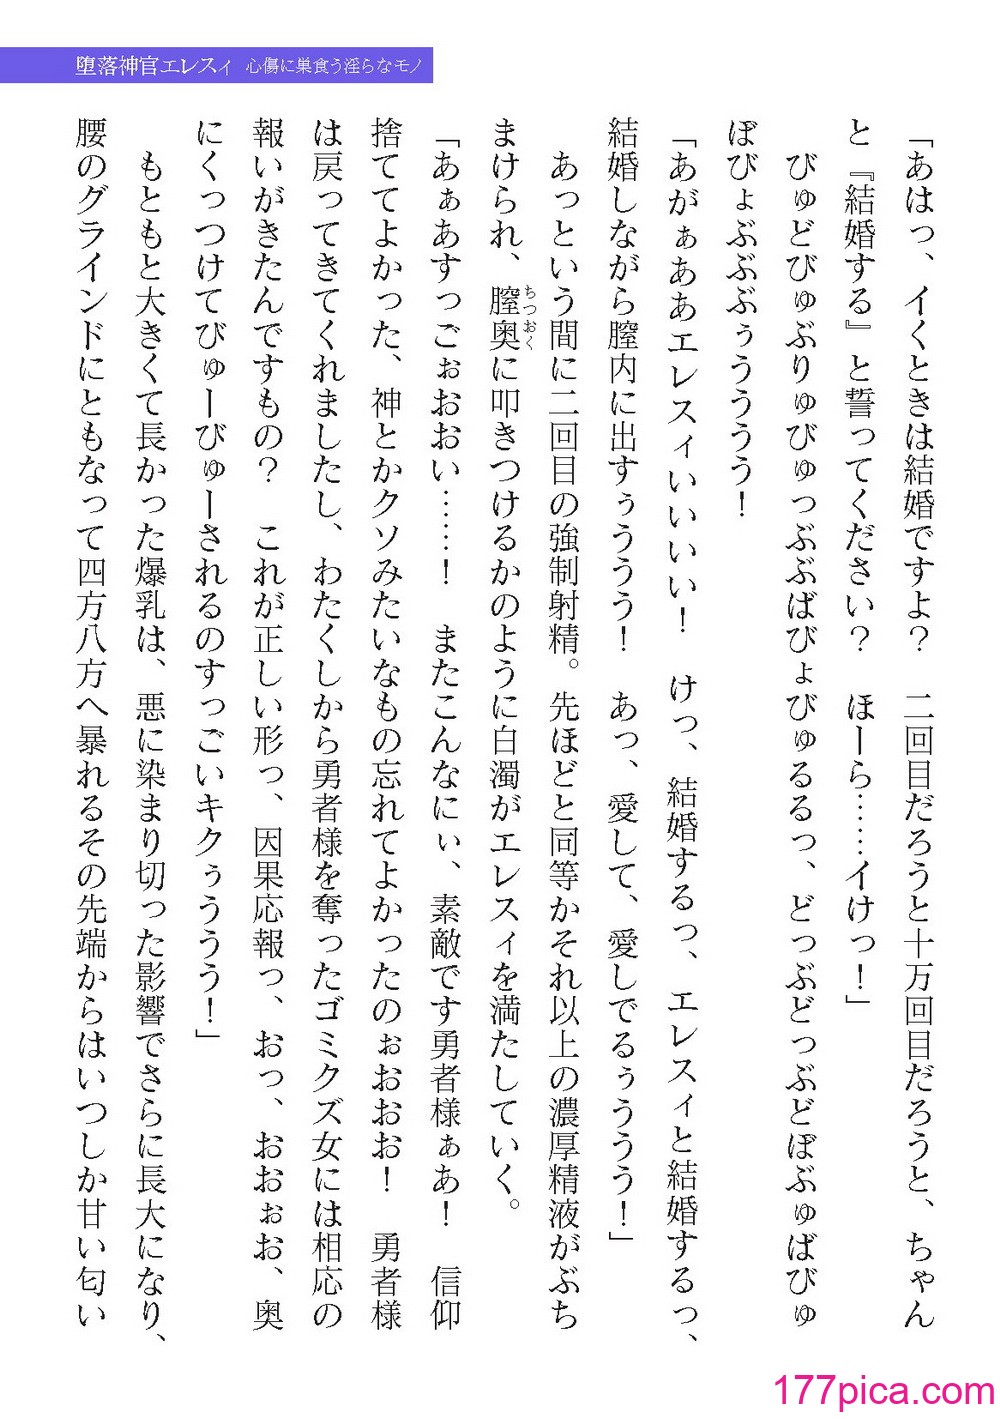 堕落神官エレスィ 心傷に巣食う淫らなモノ
「あはっ、イくときは結婚ですよ？　二回目だろうと十万回目だろうと、ちゃん
と『結婚する』と誓ってください？　ほーら……イけっ！」
びゅどびゅぶりゅびゅっぶぶばびょびゅるるっ、どっぶどっぶどぼぶゅばびゅ
ぼびょぶぶぶぅうううう！
「あがぁああエレスィいいいい！　けっ、結婚するっ、エレスィと結婚するっ、
結婚しながら膣内に出すぅううう！　あっ、愛して、愛しでるぅううう！」
あっという間に二回目の強制射精。先ほどと同等かそれ以上の濃厚精液がぶち
まけられ、膣奥に叩きつけるかのように白濁がエレスィを満たしていく。
ちつおく
「あぁあすっごぉおおい……！　またこんなにぃ、素敵です勇者様ぁあ！　信仰
捨ててよかった、神とかクソみたいなもの忘れてよかったのぉおおお！　勇者様
は戻ってきてくれましたし、わたくしから勇者様を奪ったゴミクズ女には相応の
報いがきたんですもの？　これが正しい形っ、因果応報っ、おっ、おおぉお、奥
にくっつけてびゅーびゅーされるのすっごいキクぅううう！」
もともと大きくて長かった爆乳は、悪に染まり切った影響でさらに長大になり、
腰のグラインドにともなって四方八方へ暴れるその先端からはいつしか甘い匂い
177pica.com